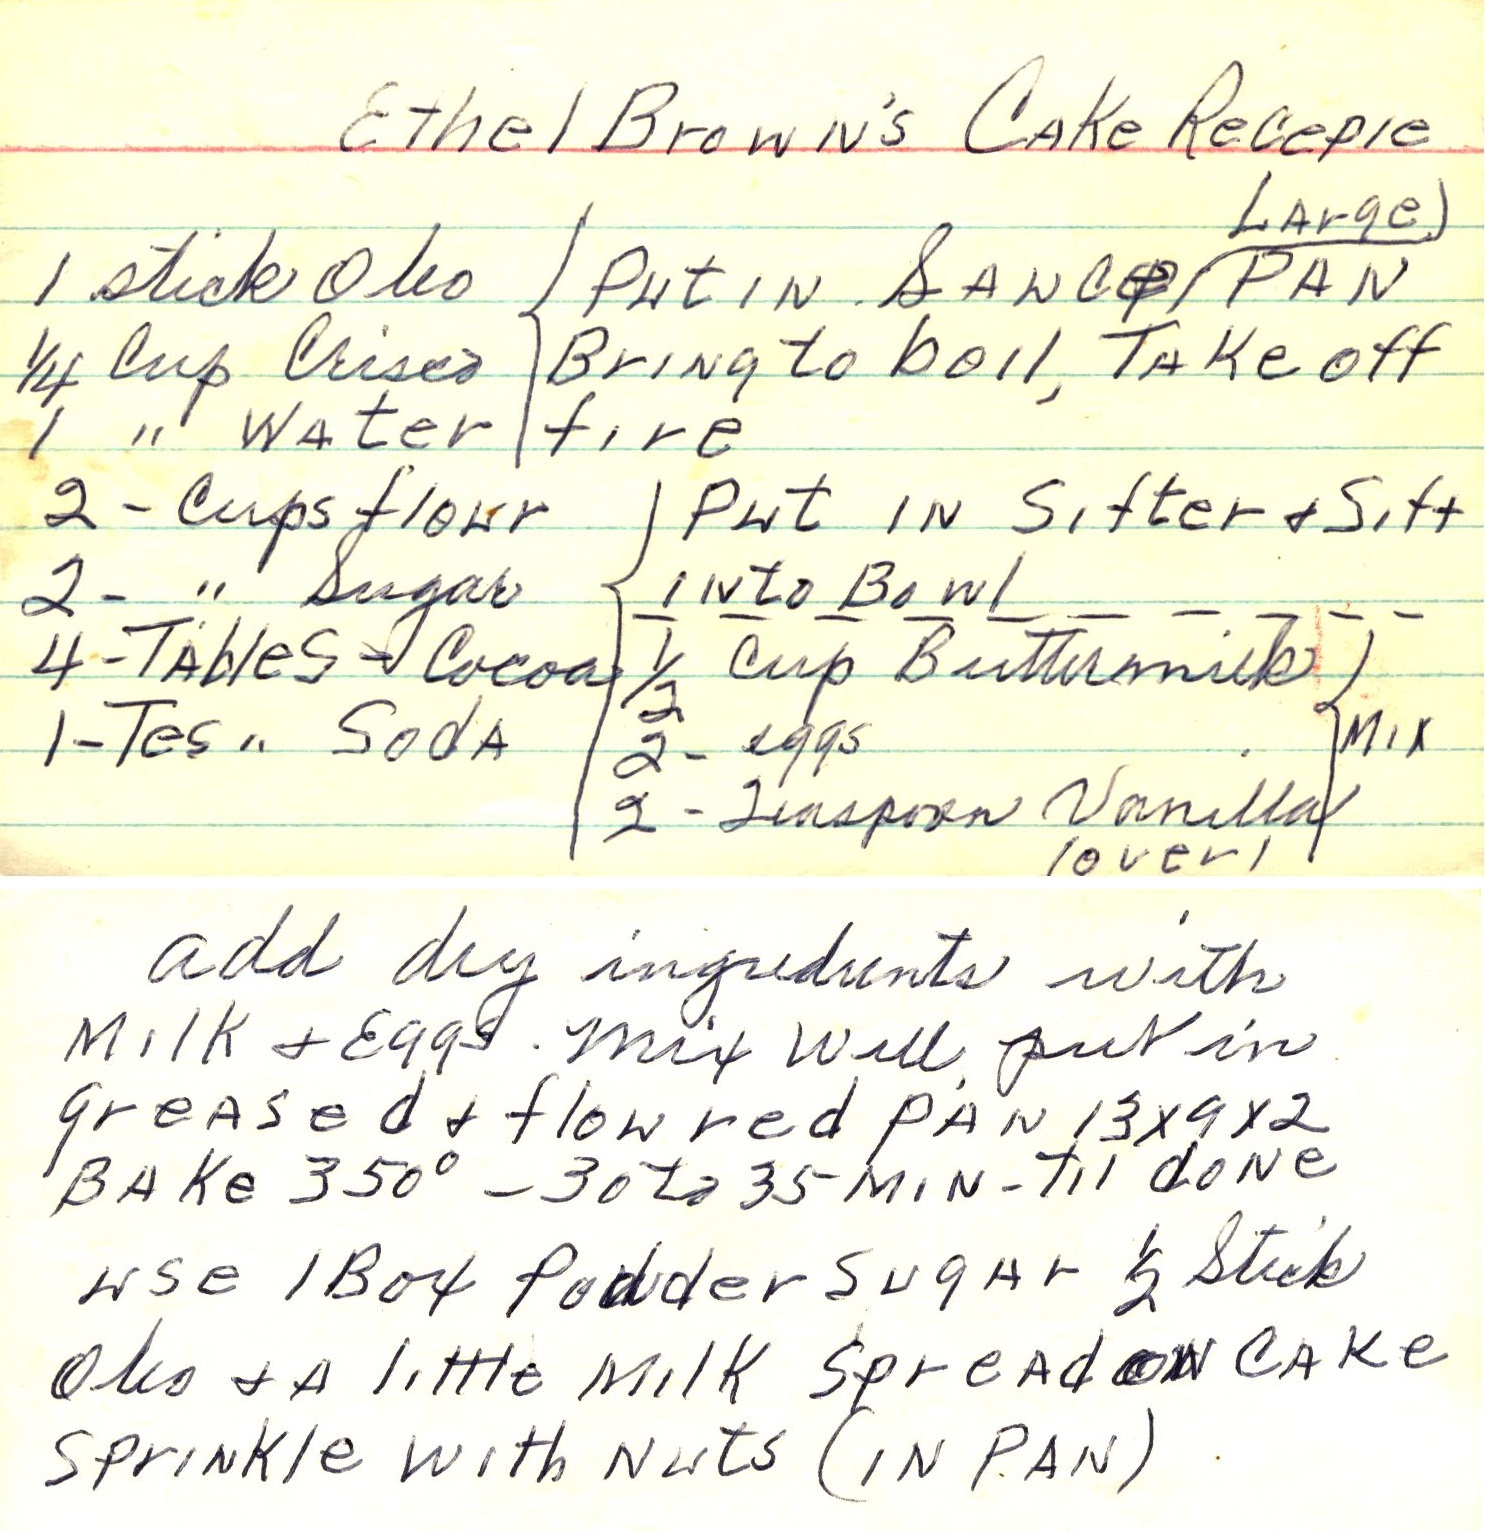 Ethel Brown's Cake Recepie
Large)
1 stick Oleo Put in Sauce/PAN
1/4 Cup Crisco Bring to boil, Take off
1 " Water fire
2 - Cups flour Put in Sifter & Sift
2 - " Sugar into Bowl
4 - Tables - Cocoa 1/2 Cup Buttermilk
1 - Tes " Soda 2 - eggs Mix
2 - Teaspoon Vanilla
(over)
add dry ingredients with
Milk & Eggs. Mix Well, put in
greased & flowred PAN 13x9x2
BAKe 350° - 30 to 35 MIN - Til done
use 1 Box Powder Sugar 1/2 Stick
Oleo & A little Milk Spread on CAKe
Sprinkle with Nuts (IN PAN)